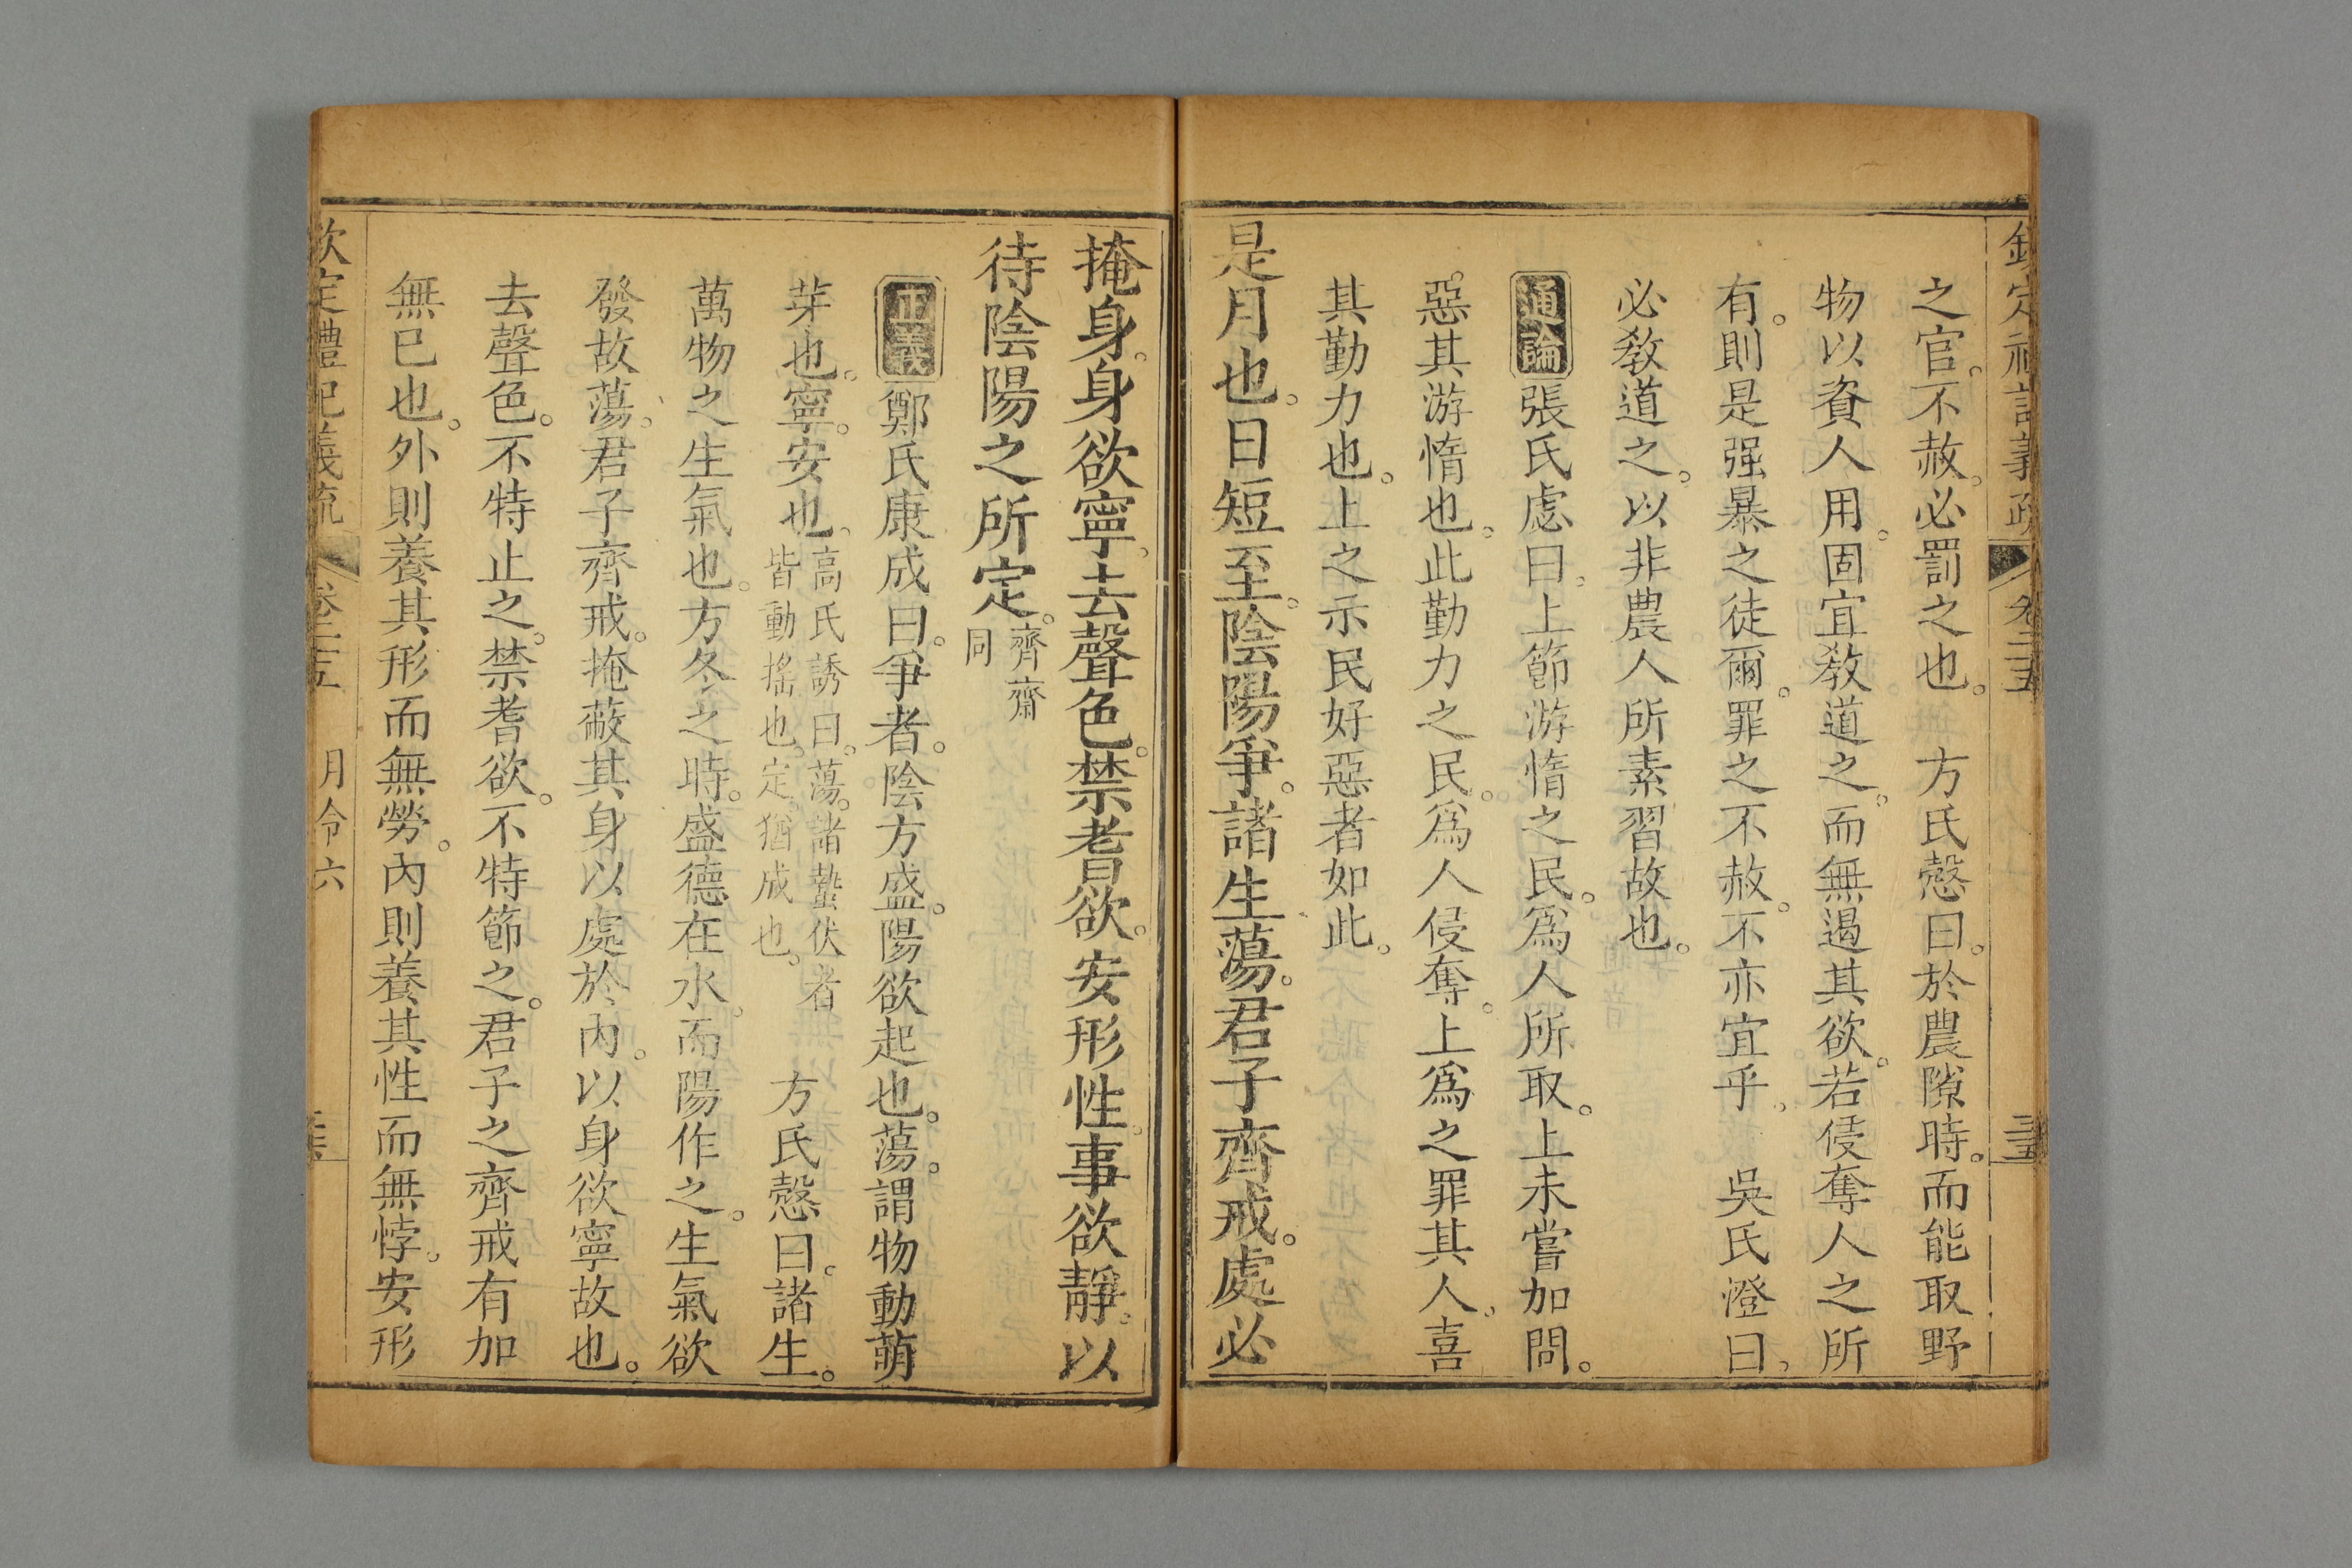 欽定禮記義疏 卷二十五
之官。不赦。必罰之也。 方氏慤曰。於農隙時。而能取野
物以資人用。固宜敎道之。而無遏其欲。若侵奪人之所
有。則是强暴之徒爾。罪之不赦。不亦宜乎。 吳氏澄曰。
必敎道之。以非農人所素習故也。
通論 張氏慮曰。上節游惰之民。爲人所取。上未嘗加問。
惡其游惰也。此勤力之民。爲人侵奪。上爲之罪其人。喜
其勤力也。上之示民好惡者如此。
是月也。日短至。陰陽爭。諸生蕩。君子齊戒。處必
掩身。身欲寧。去聲色。禁耆欲。安形性。事欲靜。以
待陰陽之所定。齊齋同
正義 鄭氏康成曰。爭者。陰方盛。陽欲起也。蕩。謂物動萌
芽也。寧。安也。高氏誘曰。蕩。諸蟄伏者皆動搖也。定。猶成也。 方氏慤曰。諸生。
萬物之生氣也。方冬之時。盛德在水。而陽作之。生氣欲
發故蕩。君子齊戒。掩蔽其身以處於內。以身欲寧故也。
去聲色。不特止之。禁耆欲。不特節之。君子之齊戒有加
無已也。外則養其形而無勞。內則養其性而無悖。安形
欽定禮記義疏 卷二十五 月令六